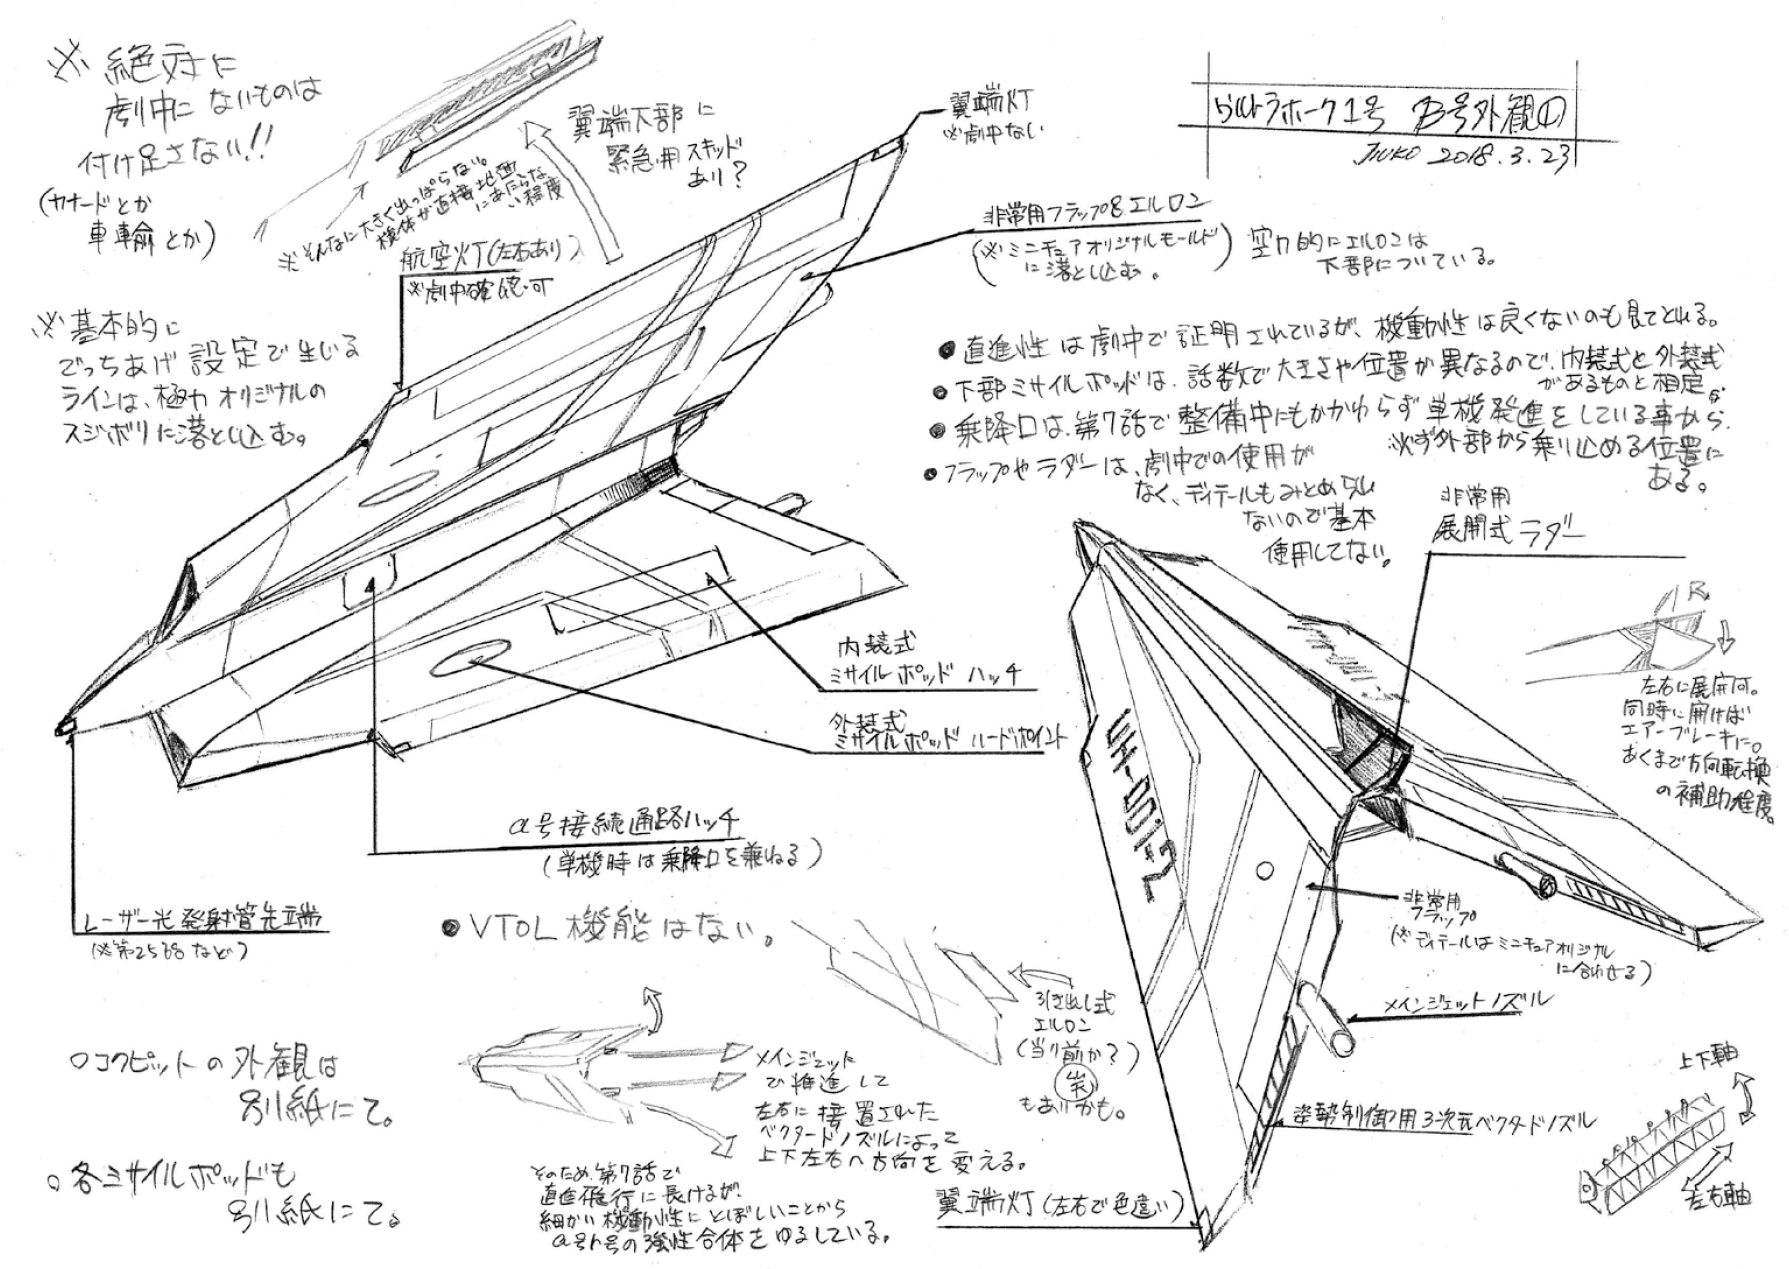 ※絶対に
劇中にないものは
付け足さない!!
(カナードとか
車輪とか)
※基本的に
でっちあげ設定で生じる
ラインは、極力オリジナルの
スジボリに落とし込む。
翼端下部に
緊急用スキッド
あり?
※そんなに大きく出っぱらない。
機体が直接地面
にあたらな
い程度
航空灯(左右あり)
※劇中確認可
翼端灯
※劇中ない
ウルトラホーク1号 β号外観①
JIUKO 2018.3.23
非常用フラップ&エルロン
(※ミニチュアオリジナルモールド
に落とし込む。)
空力的にエルロンは
下部についている。
●直進性は劇中で証明されているが、機動性は良くないのも見てとれる。
●下部ミサイルポッドは、話数で大きさや位置が異なるので、内装式と外装式
があるものと想定。
●乗降口は、第7話で整備中にもかかわらず単機発進をしている事から、
必ず外部から乗り込める位置に
ある。
●フラップやラダーは、劇中での使用が
なく、ディテールもみとめられ
ないので基本
使用してない。
非常用
展開式ラダー
R
左右に展開可。
同時に開けば
エアーブレーキに。
あくまで方向転換
の補助程度。
内装式
ミサイルポッド ハッチ
外装式
ミサイルポッド ハードポイント
α号接続通路ハッチ
(単機時は乗降口を兼ねる)
レーザー光発射管先端
(※第25話など)
●VTOL機能はない。
UH-001-2
非常用
フラップ
(※ディテールはミニチュアオリジナル
に合わせる)
メインジェットノズル
引き出し式
エルロン
(当り前か?)
笑
もありかも。
○コクピットの外観は
別紙にて。
○各ミサイルポッドも
別紙にて。
メインジェット
で推進して
左右に設置された
ベクタードノズルによって
上下左右へ方向を変える。
そのため、第7話で
直進飛行に長けるが、
細かい機動性にとぼしいことから
α号γ号の強性合体をゆるしている。
姿勢制御用3次元ベクタードノズル
翼端灯(左右で色違い)
上下軸
左右軸